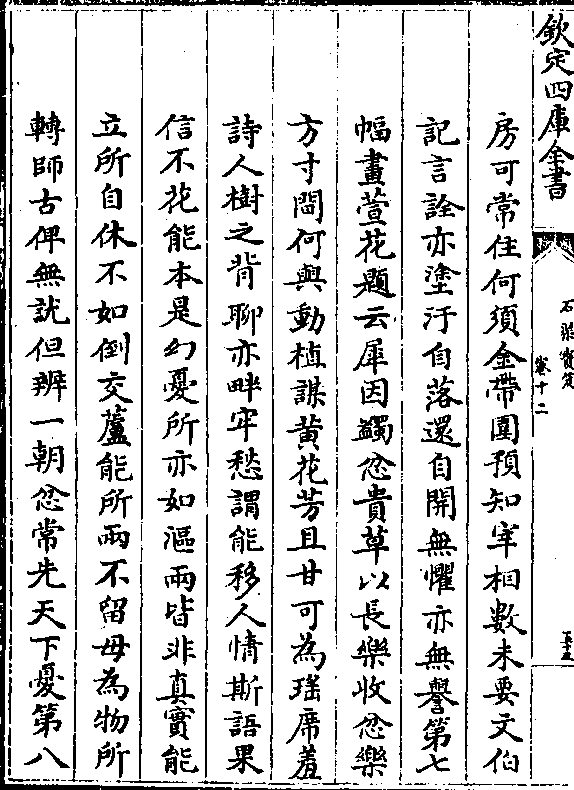 欽定四庫全書
石渠寶笈
卷十二
房可常住何須金帶圍預知宰相數未要文伯
記言詮亦塗汙自落還自開無懼亦無譽第七
幅畫萱花題云犀因蠲忿貴草以長樂收忿樂
方寸間何與動植謀黄花芳且甘可為瑤席羞
詩人樹之背聊亦畔牢愁謂能移人情斯語果
信不花能本是幻憂所亦如漚兩皆非真實能
立所自休不如倒交蘆能所兩不留毋為物所
轉師古俾無訧但辨一朝忿常先天下憂第八